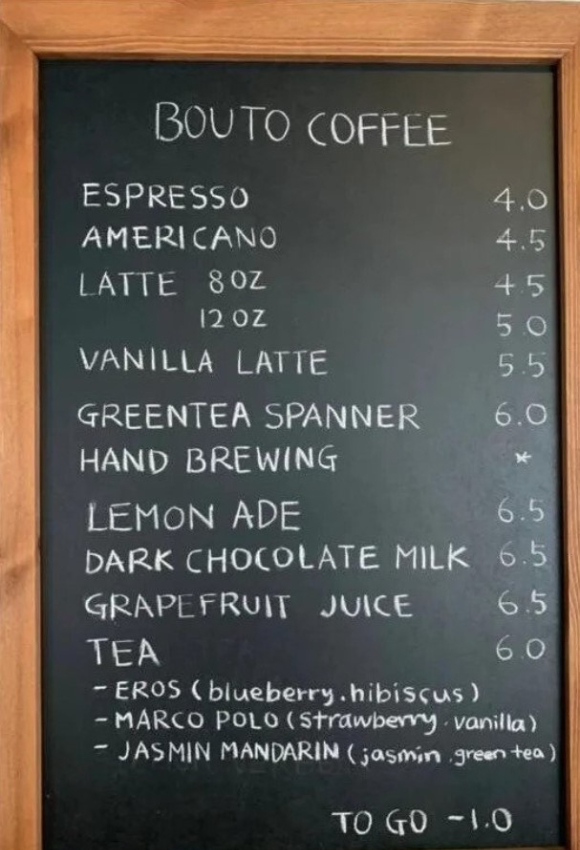 BOUTO COFFEE
ESPRESSO 4.0
AMERICANO 4.5
LATTE 8OZ 4.5
12OZ 5.0
VANILLA LATTE 5.5
GREENTEA SPANNER 6.0
HAND BREWING *
LEMON ADE 6.5
DARK CHOCOLATE MILK 6.5
GRAPEFRUIT JUICE 6.5
TEA 6.0
- EROS (blueberry.hibiscus)
- MARCO POLO (strawberry.vanilla)
- JASMIN MANDARIN (jasmin.green tea)
TO GO -1.0